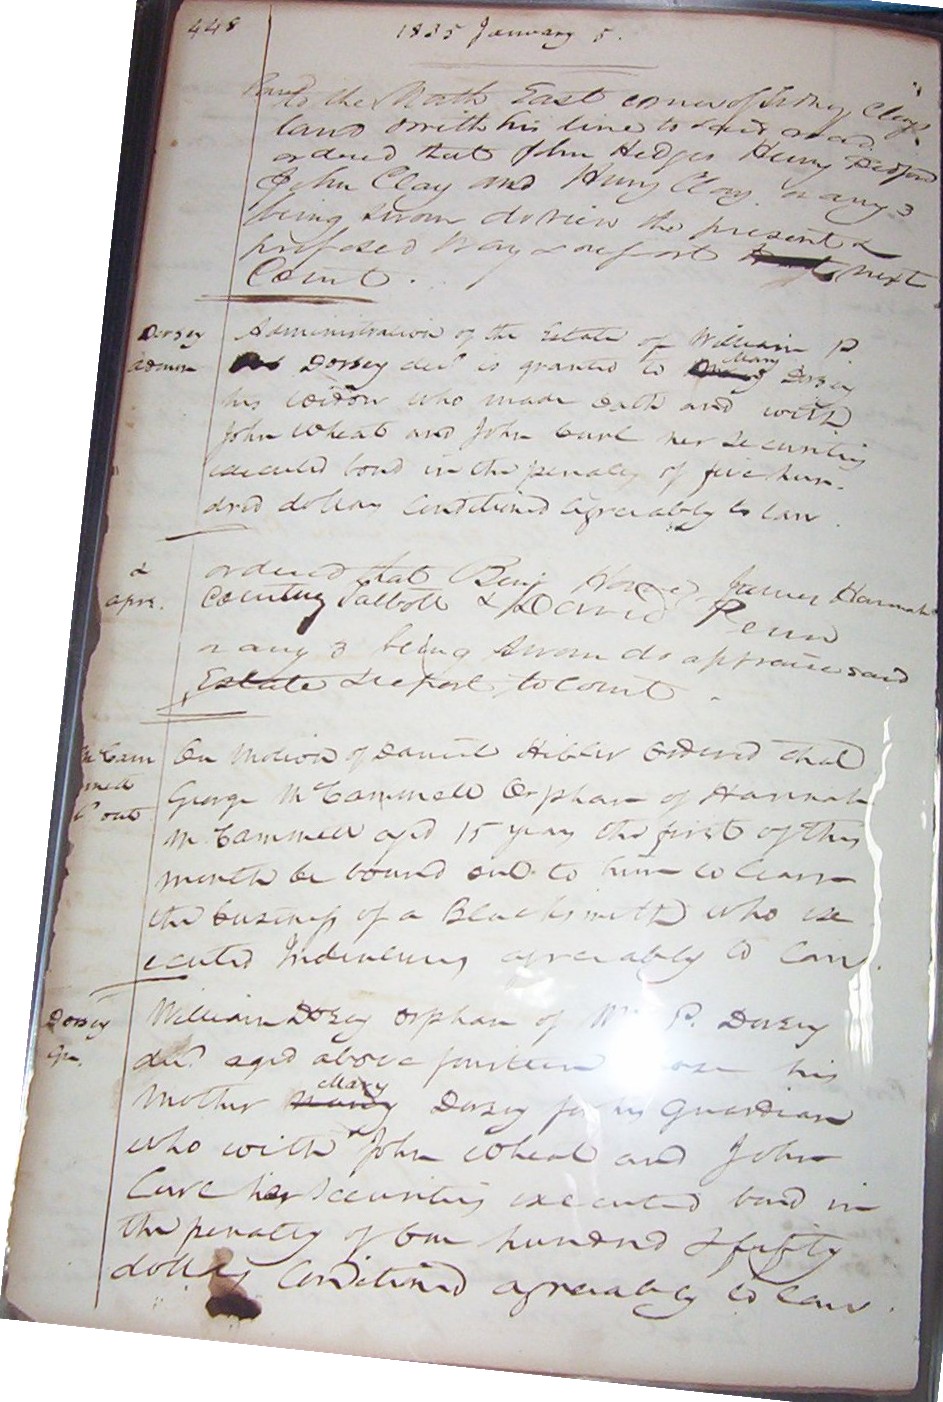 448 1835 January 5.
to the North East corner of Henry Clays
land & with his line to said road.
ordered that John Hedges Henry Bedford
John Clay and Henry Clay or any 3
being sworn do view the present &
proposed way & report next
Court.
Dorsey Administration of the Estate of William P.
Admon Dorsey decd is granted to Mary Dorsey
his widow who made oath and with
John Wheat and John Curl her Securities
executed bond in the penalty of five hun-
dred dollars Conditioned agreeably to law.
& ordered that Benj James Hannah
aprs. Courtney Talbott & David Penn
or any 3 being sworn do appraise said
Estate & report to Court.
McCam On motion of Daniel Hibler Ordered that
mell George McCammell Orphan of Hannah
out McCammell aged 15 years the first of this
month be bound out to him to learn
the business of a Blacksmith who ex
ecuted Indentures agreeably to law.
Dorsey William Dorsey orphan of Wm P. Dorsey
Gn. decd aged above fourteen chose his
Mother Mary Dorsey for his Guardian
who with John Wheat and John
Curl her Securities executed bond in
the penalty of one hundred & fifty
dollars Conditioned agreeably to law.